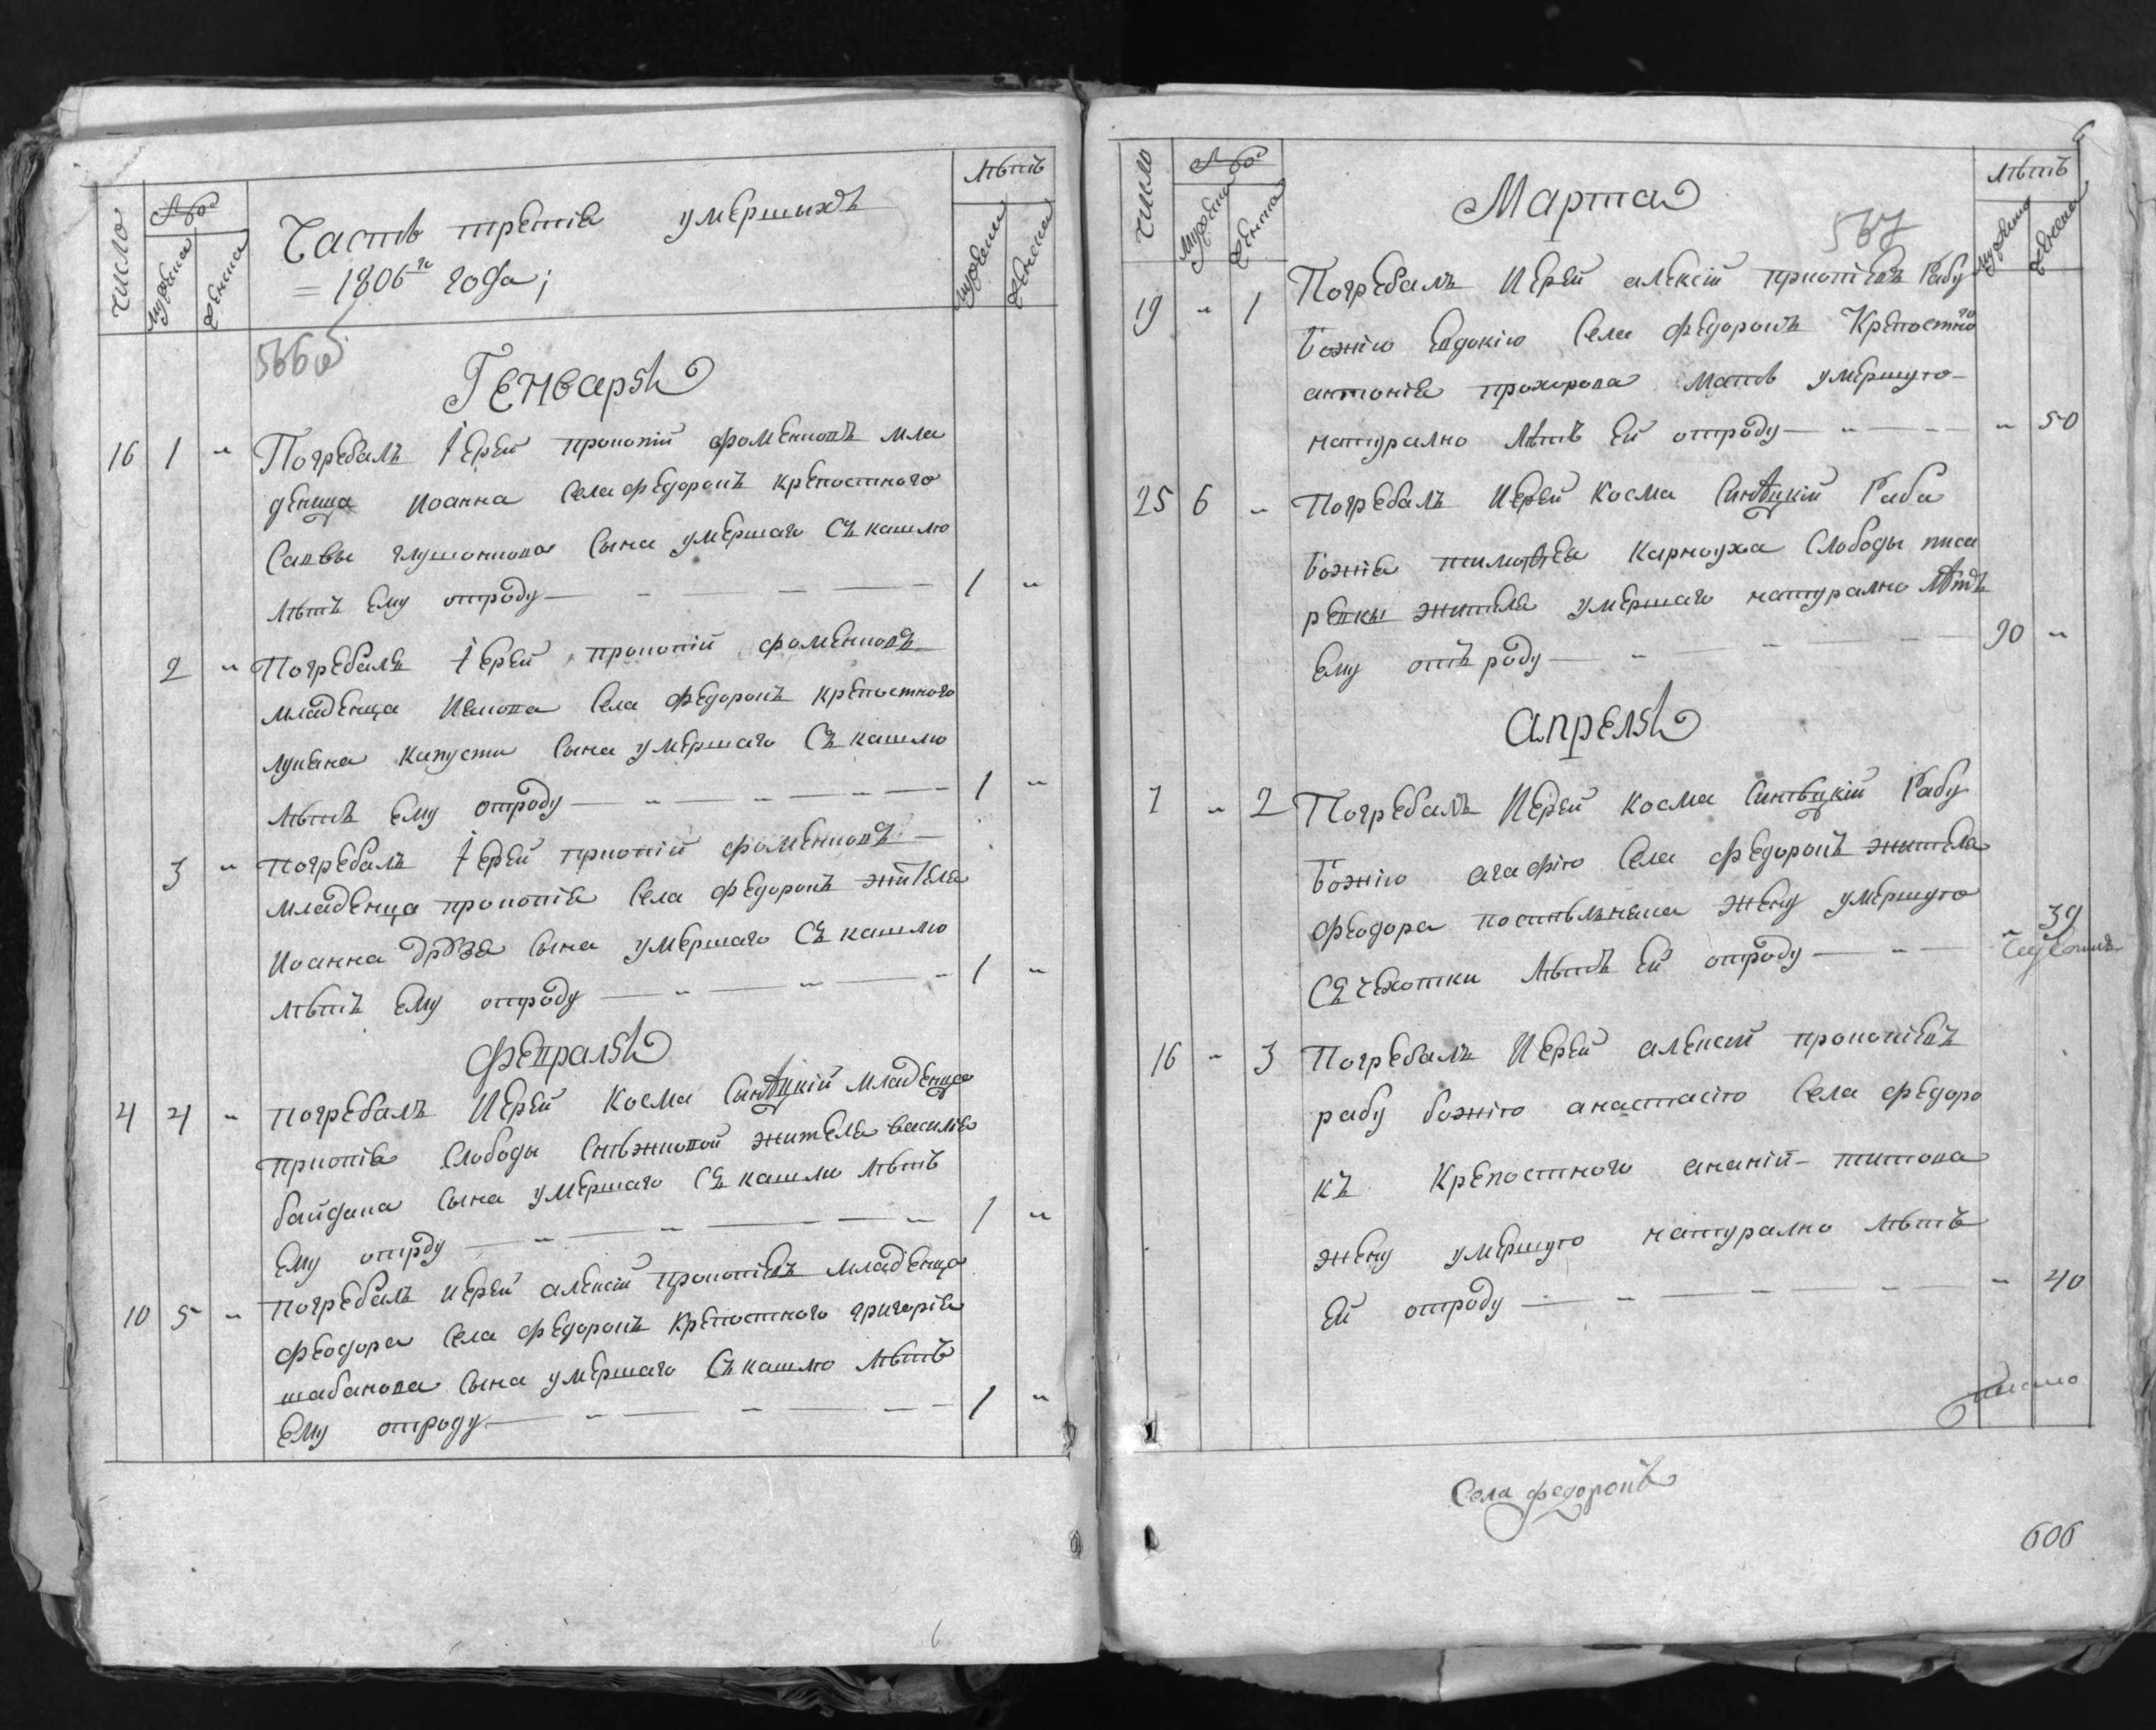 число
№
мужеска
женска
Часть третія умершихъ
= 1806го года;
лѣтъ
мужеска
женска
566об
Генварь
16 1 " Погребалъ Іерей прокопій фоменковъ мла
денца Иоанна Села федоровъ крепостного
Саввы Сына умершаго Съ кашлю
лѣтъ ему отроду 1 "
2 " Погребалъ Іерей прокопій фоменковъ
младенца Иякова Села федоровъ крепостного
лукяна капусти Сына умершаго Съ кашлю
лѣтъ ему отроду 1 "
3 " Погребалъ Іерей прокопій фоменковъ
младенца прокопія Села федоровъ жителя
Иоанна Сына умершаго Съ кашлю
лѣтъ ему отроду 1 "
февраль
4 4 " Погребалъ Иерей косма Синѣцкій младенца
прокопія Слободы Снѣжковой жителя василія
байдака Сына умершаго Съ кашлю лѣтъ
ему отрду 1 "
10 5 " Погребалъ иерей алексій прокопіевъ младенца
феодора Села федоровъ крепостного григорія
шабанова Сына умершаго Съ кашлю лѣтъ
ему отроду 1 "
6
число
№
мужеска
женска
Марта
567
лѣтъ
мужеска
женска
19 " 1 Погребалъ Иерей алексій прокопіевъ Рабу
божію Евдокію Села федоровъ Крепостнго
антонія прохорова мать умершую
натурално лѣтъ ей отроду " 50
25 6 " Погребалъ Иерей косма Синѣцкій Раба
божія тимоѳея карноуха Слободы писа
ревки жителя умершаго натурално лѣтъ
ему отъ роду 90 "
апрель
1 " 2 Погребалъ Иерей косма Синѣцкій Рабу
божію агафію Села федоровъ жителя
феодора жену умершую
Съ чехотки лѣтъ ей отроду " 39
16 " 3 Погребалъ Иерей алексій прокопіевъ
рабу божію анастасію Села федоро
въ Крепостного ананій титова
жену умершую натурално лѣтъ
ей отроду " 40
Села федоровъ
606